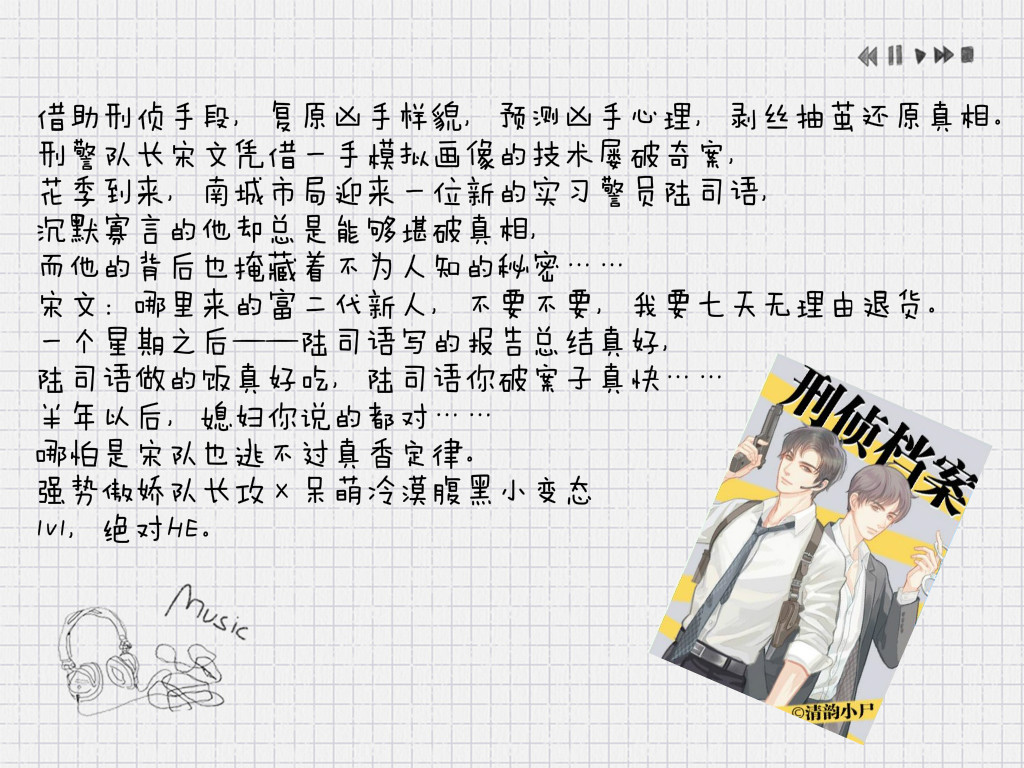 借助刑侦手段，复原凶手样貌，预测凶手心理，剥丝抽茧还原真相。
刑警队长宋文凭借一手模拟画像的技术屡破奇案，
花季到来，南城市局迎来一位新的实习警员陆司语，
沉默寡言的他却总是能够堪破真相，
而他的背后也掩藏着不为人知的秘密……
宋文：哪里来的富二代新人，不要不要，我要七天无理由退货。
一个星期之后——陆司语写的报告总结真好，
陆司语做的饭真好吃，陆司语你破案子真快……
半年以后，媳妇你说的都对……
哪怕是宋队也逃不过真香定律。
强势傲娇队长攻×呆萌冷漠腹黑小变态
1v1，绝对HE。
刑侦档案
©清韵小尸
Music